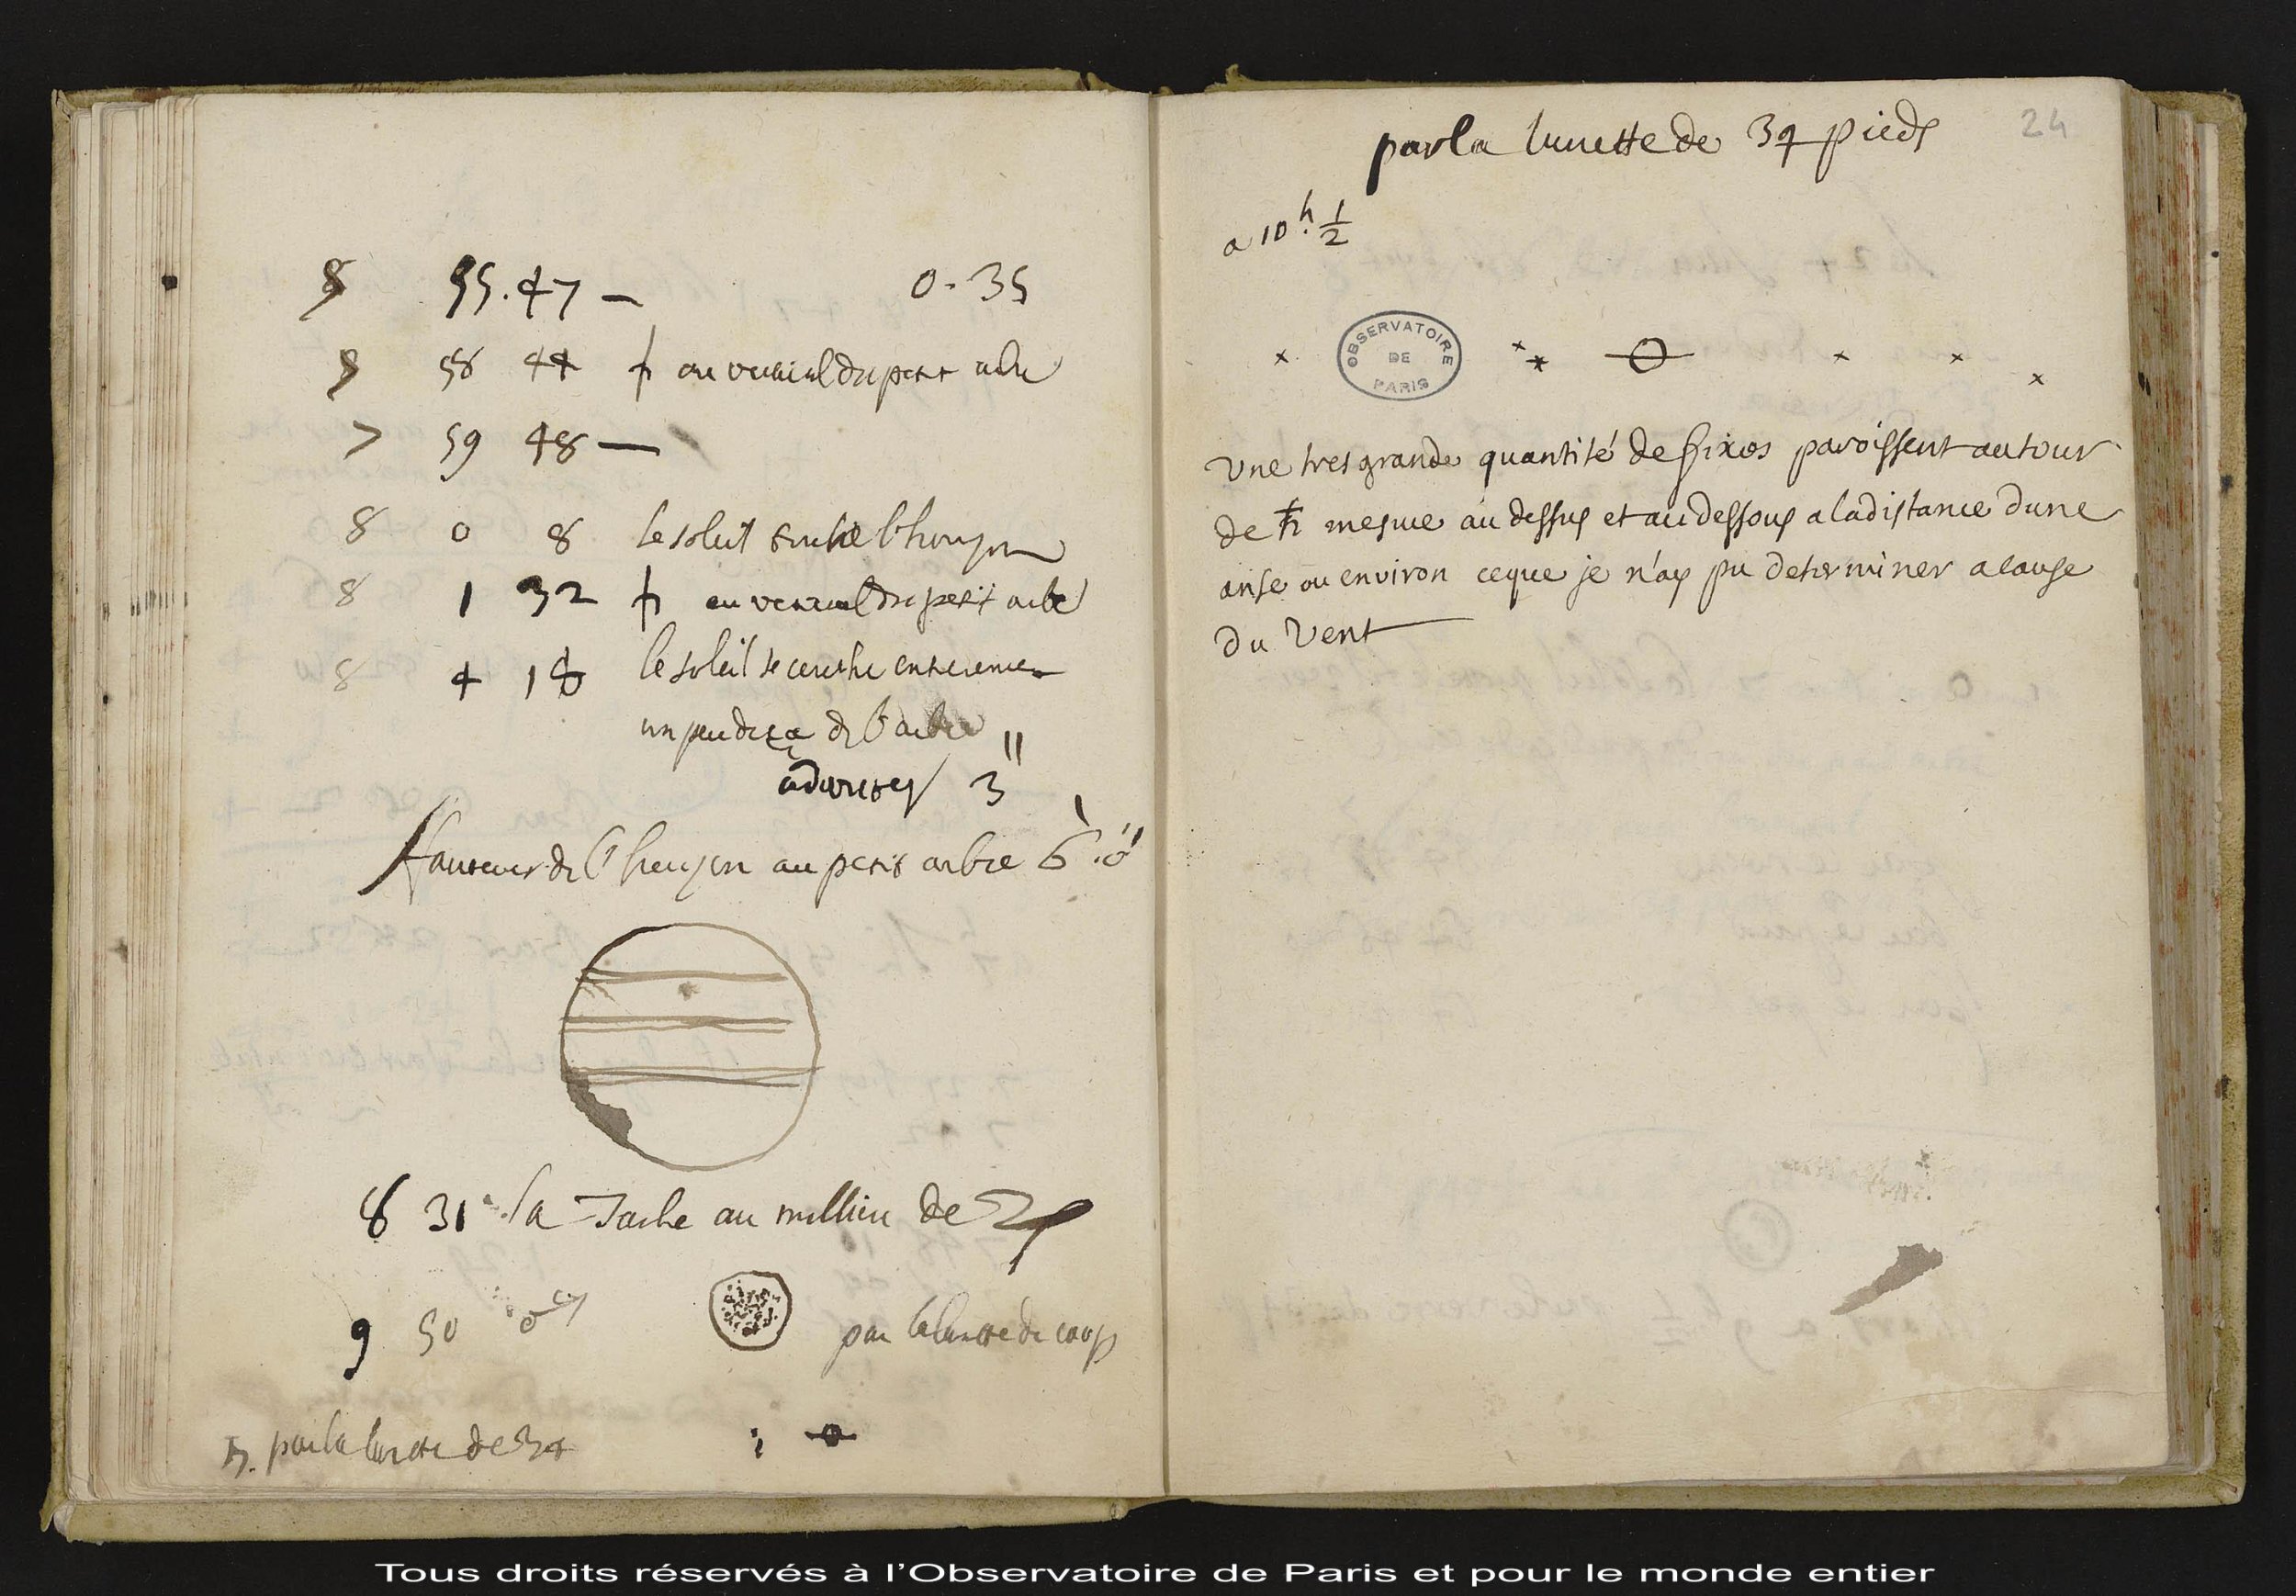 8 55.47 — 0. 35
8 58 44 au vertical du petit arbre
7 59 48 —
8 0 8 le soleil touche l'horizon
8 1 32 au vertical du petit arbre
8 4 18 le soleil se couche entierement
un peu deça de l'arbre
adjoustes 3"
Hauteur de l'horizon au petit arbre 6'.0"
8 31 la Tache au millieu de ♃
9 50 par la lunette de camp
♄. par la lunette de 34
24
par la lunette de 34 pieds
a 10.h 1/2
OBSERVATOIRE
DE
PARIS
Une tres grande quantité de fixes paroissent autour
de ♄ mesme au dessus et au dessous a la distance dune
anse ou environ ceque je n'ay pu determiner a cause
du Vent
Tous droits réservés à l'Observatoire de Paris et pour le monde entier